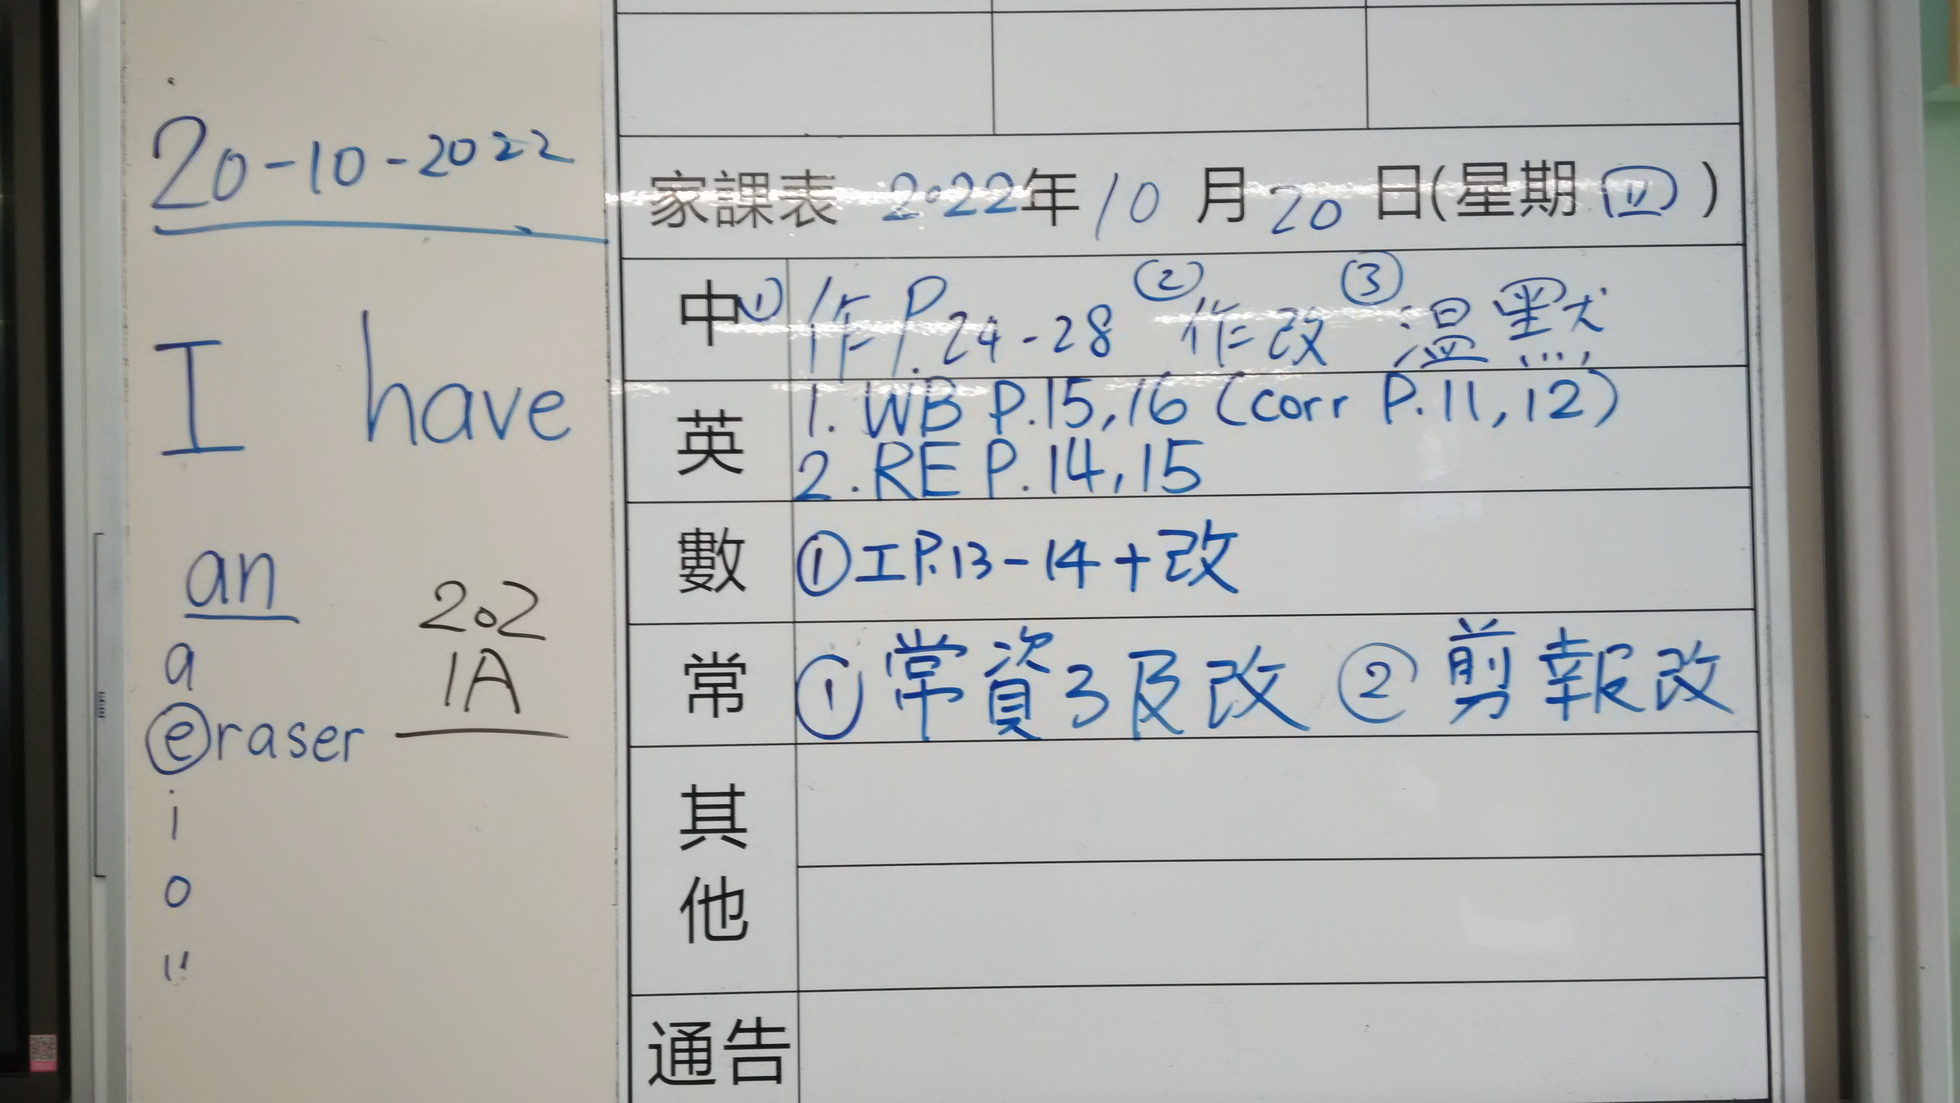 20-10-2022
I have
an
a
eraser
i
o
u
202
1A
家課表 2022年10月20日(星期四)
中 ① 作P.24-28 ② 作改 ③ 溫默
英 1. WB P.15,16 (corr P.11,12)
2. RE P.14,15
數 ① 工P.13-14+改
常 ① 常資3及改 ② 剪報改
其他
通告